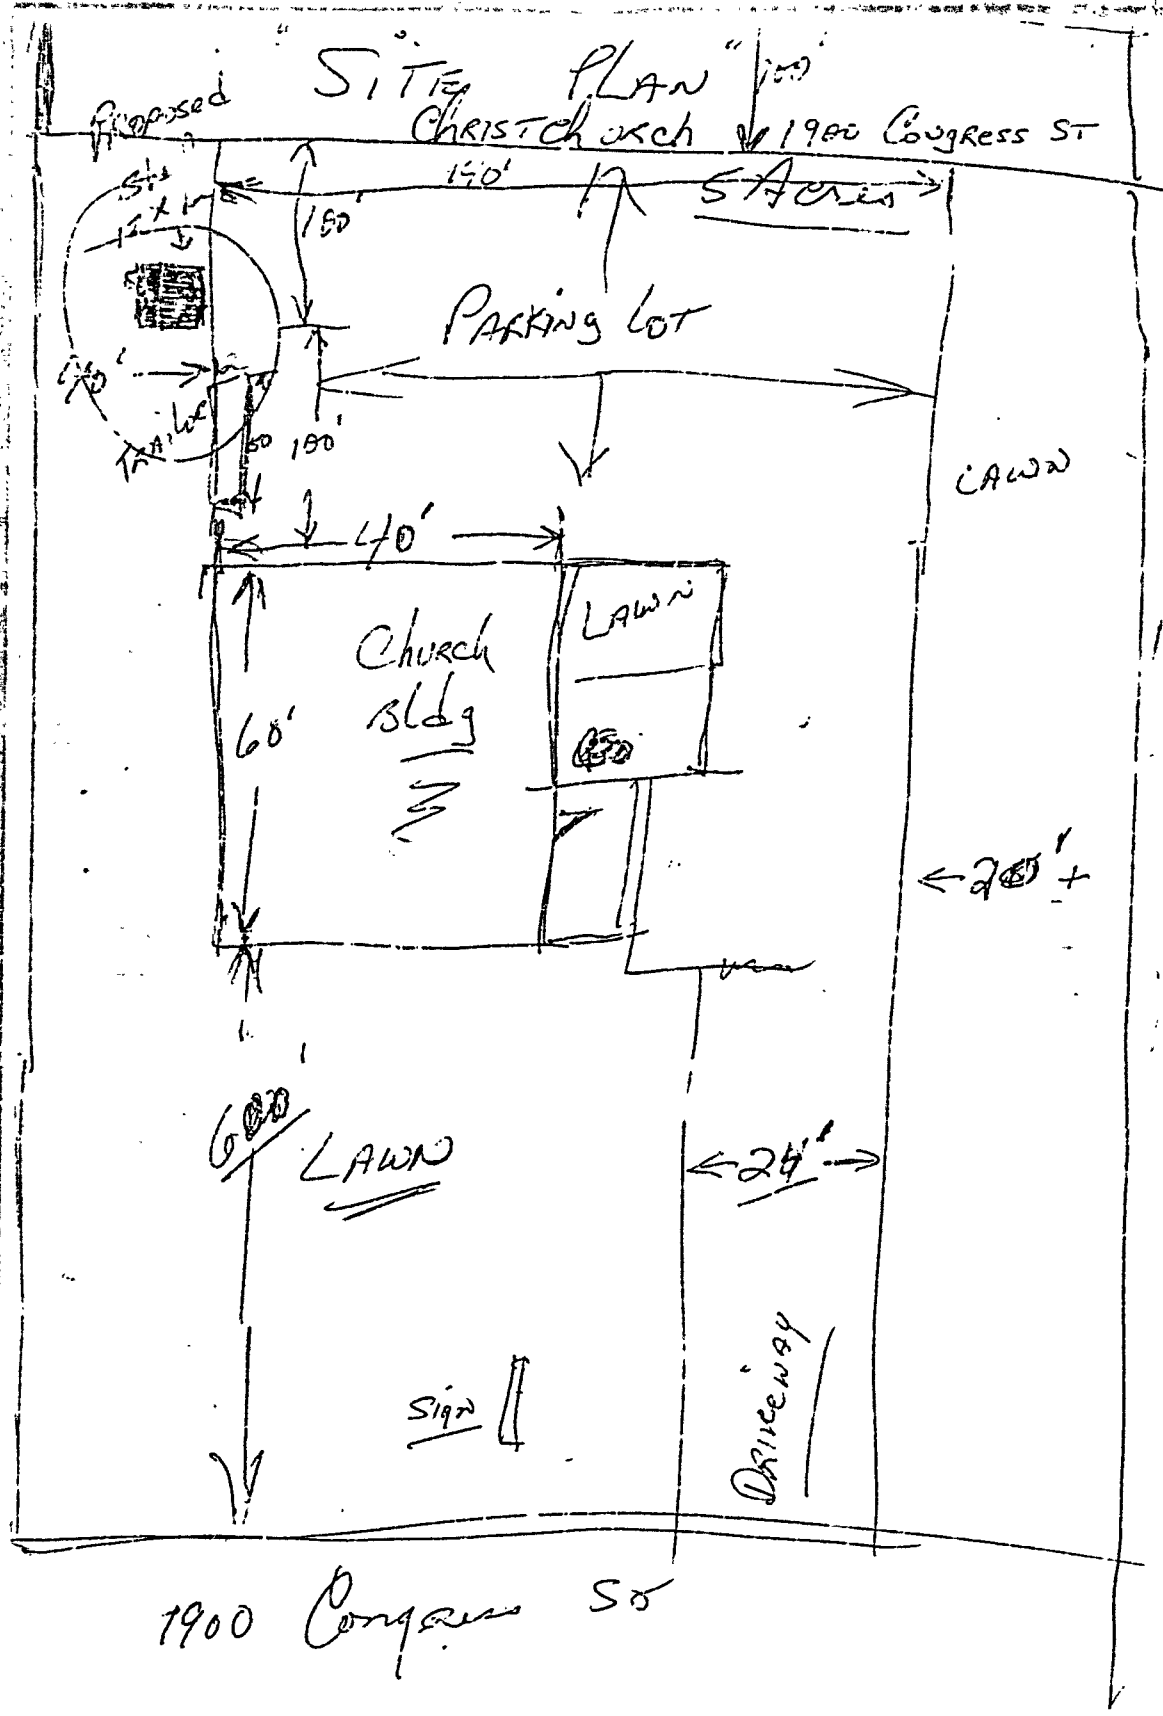 "SITE PLAN"
100'
Proposed
CHRISTCHURCH 1900 Congress ST
140'
5 Acres
100'
PARKING LOT
40'
Trailer
60
100'
LAWN
40'
LAWN
Church
Bldg
60'
←20'+
600'
LAWN
24'
Sign
DRIVEWAY
1900 Congress ST